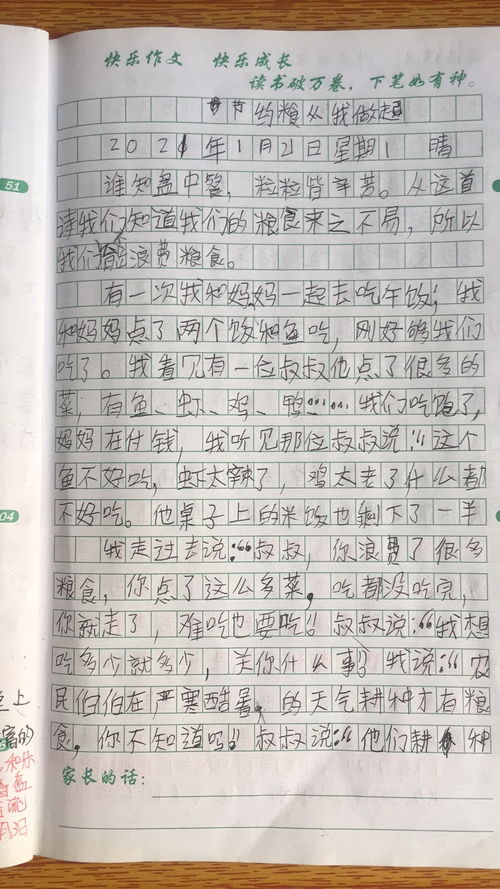 快乐作文 快乐成长
读书破万卷，下笔如有神。
节约粮从我做起
2021年1月21日星期1 晴
谁知盘中餐，粒粒皆辛苦。从这首
诗我们知道我们的粮食来之不易，所以
我们能浪费粮食。
有一次我和妈妈一起去吃午饭；我
和妈妈点了两个饭和鱼吃，刚好够我们
吃了。我看见有一位叔叔他点了很多的
菜；有鱼、虾、鸡、鸭……我们吃饱了，
妈妈在付钱，我听见那位叔叔说：“这个
鱼不好吃，虾太辣了，鸡太老了什么都
不好吃。他桌子上的米饭也剩下了一半
我走过去说：“叔叔，你浪费了很多
粮食，你点了这么多菜，吃都没吃完，
你就走了，难吃也要吃！叔叔说：“我想
吃多少就多少，关你什么事？我说：“农
民伯伯在严寒酷暑、的天气耕种才有粮
食，你不知道吗！叔叔说：“他们耕种
家长的话：
51
04
上
的